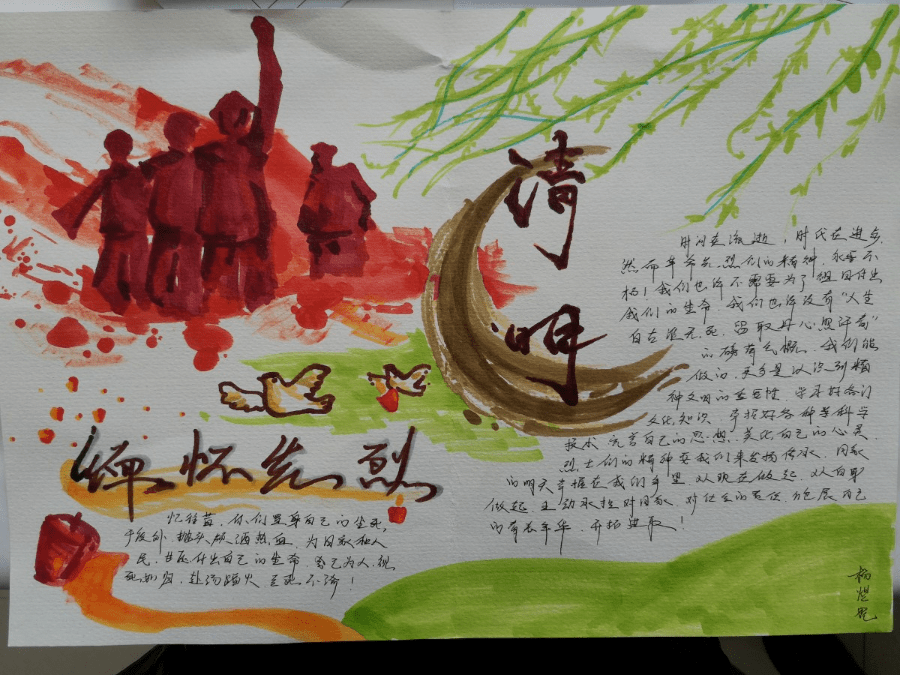 清明
缅怀先烈
忆往昔，你们置身自己的生死
于度外，抛头颅洒热血，为国家和人
民，甘愿付出自己的生命，舍己为人，视
死如归，赴汤蹈火，至死不渝！
时间在流逝，时代在进步，
然而革命先烈们的精神，永垂不
朽！我们也许不需要为了祖国付出
我们的生命，我们也许没有“人生
自古谁无死，留取丹心照汗青”
的磅礴气概，我们能
做的，来于是认识到精
神文明的重要性，学习好各门
文化知识，掌握好各种类科学
技术，完善自己的思想，美化自己的心灵，
烈士们的精神要我们来发扬传承，国家
的明天掌握在我们手里，从现在做起，从自身
做起，主动承担对国家，对社会的责任，
的青春年华，开拓进取！
杨